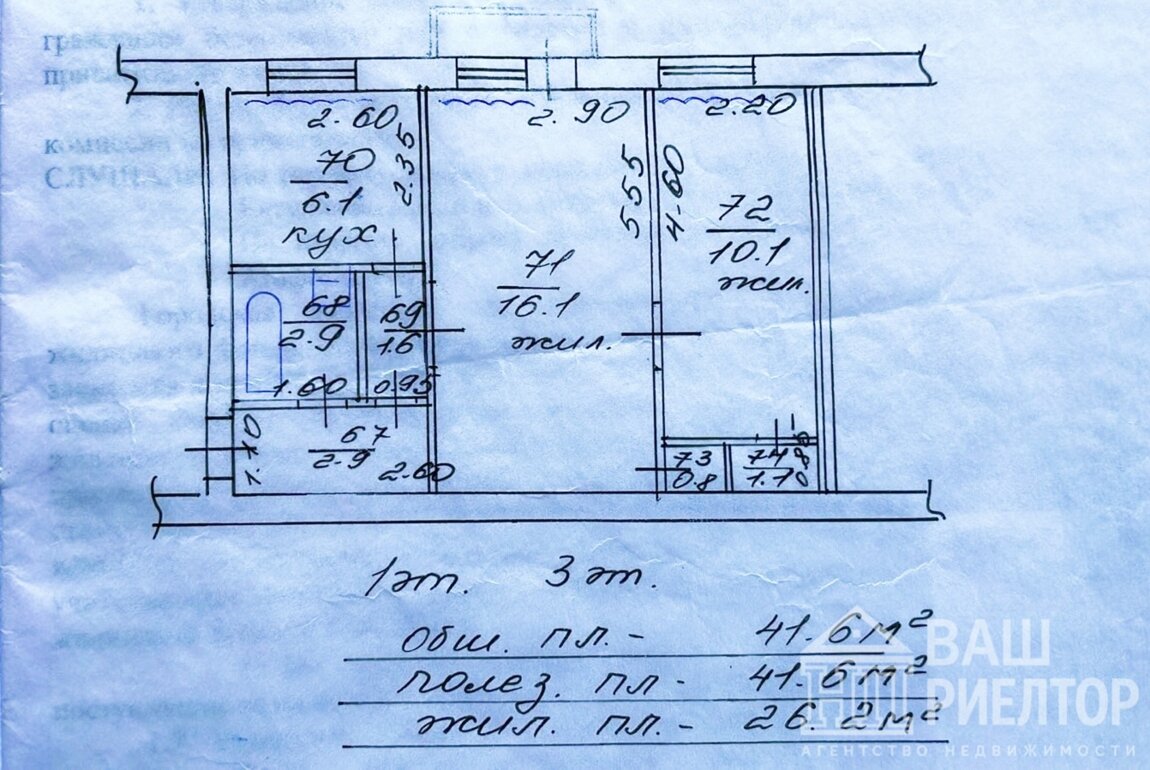 2.60 2.90 2.20
70
6.1
кух
2.35
5.55
4.60
72
10.1
жил.
71
16.1
жил.
68
2.9
69
1.6
1.60 0.95
67
2.9
1.10
2.60
73
0.8
74
1.1
0.85
1 эт. 3 эт.
общ. пл. - 41.6 м²
полез. пл - 41.6 м²
жил. пл. - 26.2 м²
ВАШ
РИЕЛТОР
АГЕНТСТВО НЕДВИЖИМОСТИ
СЛУШАЛИ